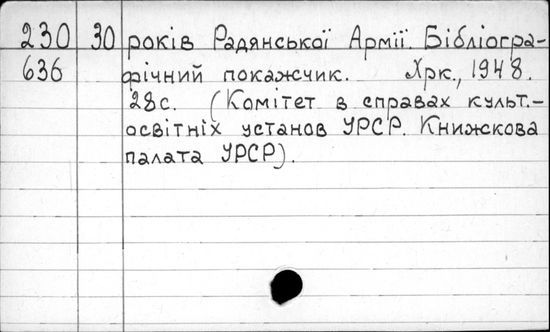 230 30 років Радянської Армії. Бібліогра-
636 фічний покажчик. Хрк., 1948.
28с. (Комітет в справах культ.-
освітніх установ УРСР. Книжскова
палата УРСР).